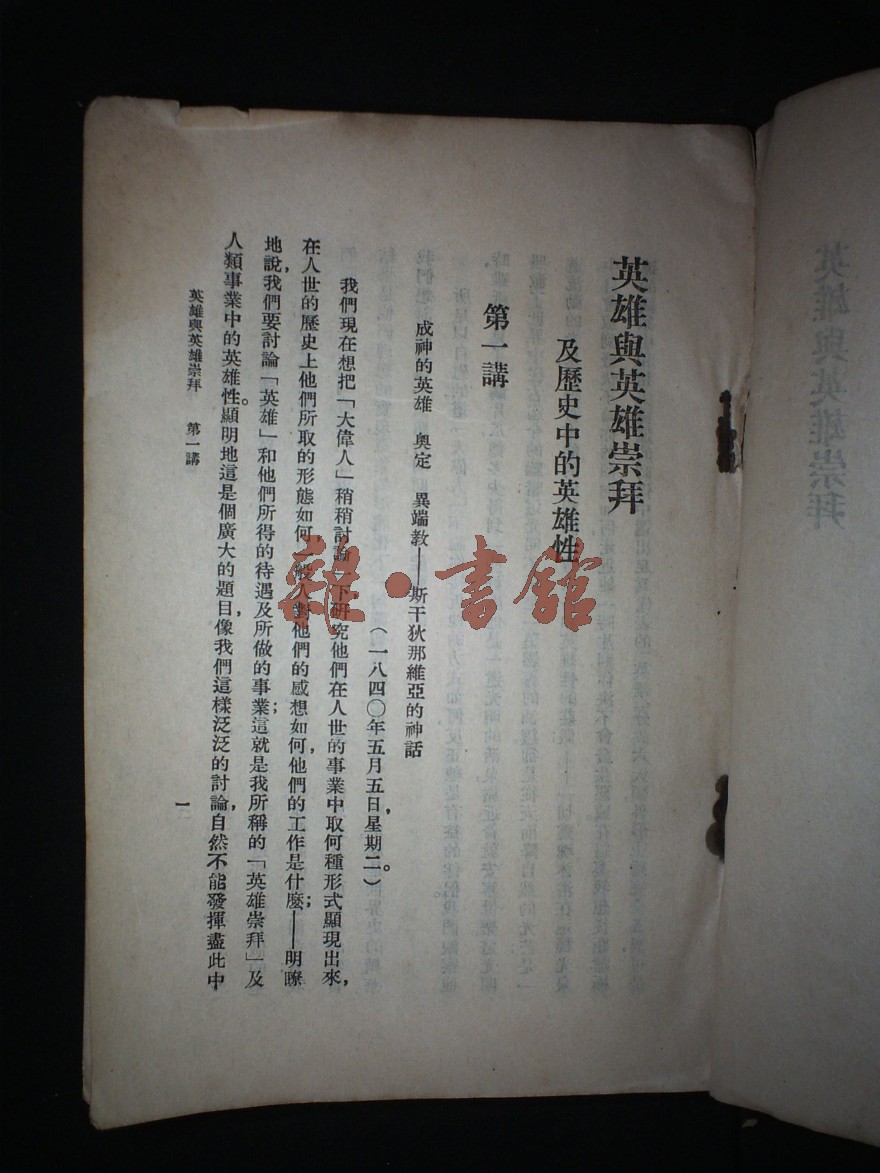 英雄與英雄崇拜
及歷史中的英雄性
第一講
成神的英雄　奧定　異端教——斯干狄那維亞的神話
（一八四〇年五月五日，星期二。）
我們現在想把「大偉人」稍稍討論一下研究他們在人世的事業中取何種形式顯現出來，
在人世的歷史上他們所取的形態如何，一般人對他們的感想如何，他們的工作是什麼；——明瞭
地說，我們要討論「英雄」和他們所得的待遇及所做的事業；這就是我所稱的「英雄崇拜」及
人類事業中的英雄性。顯明地這是個廣大的題目，像我們這樣泛泛的討論，自然不能發揮盡此中
英雄與英雄崇拜　第一講
一
雜·書館
英雄與英雄崇拜